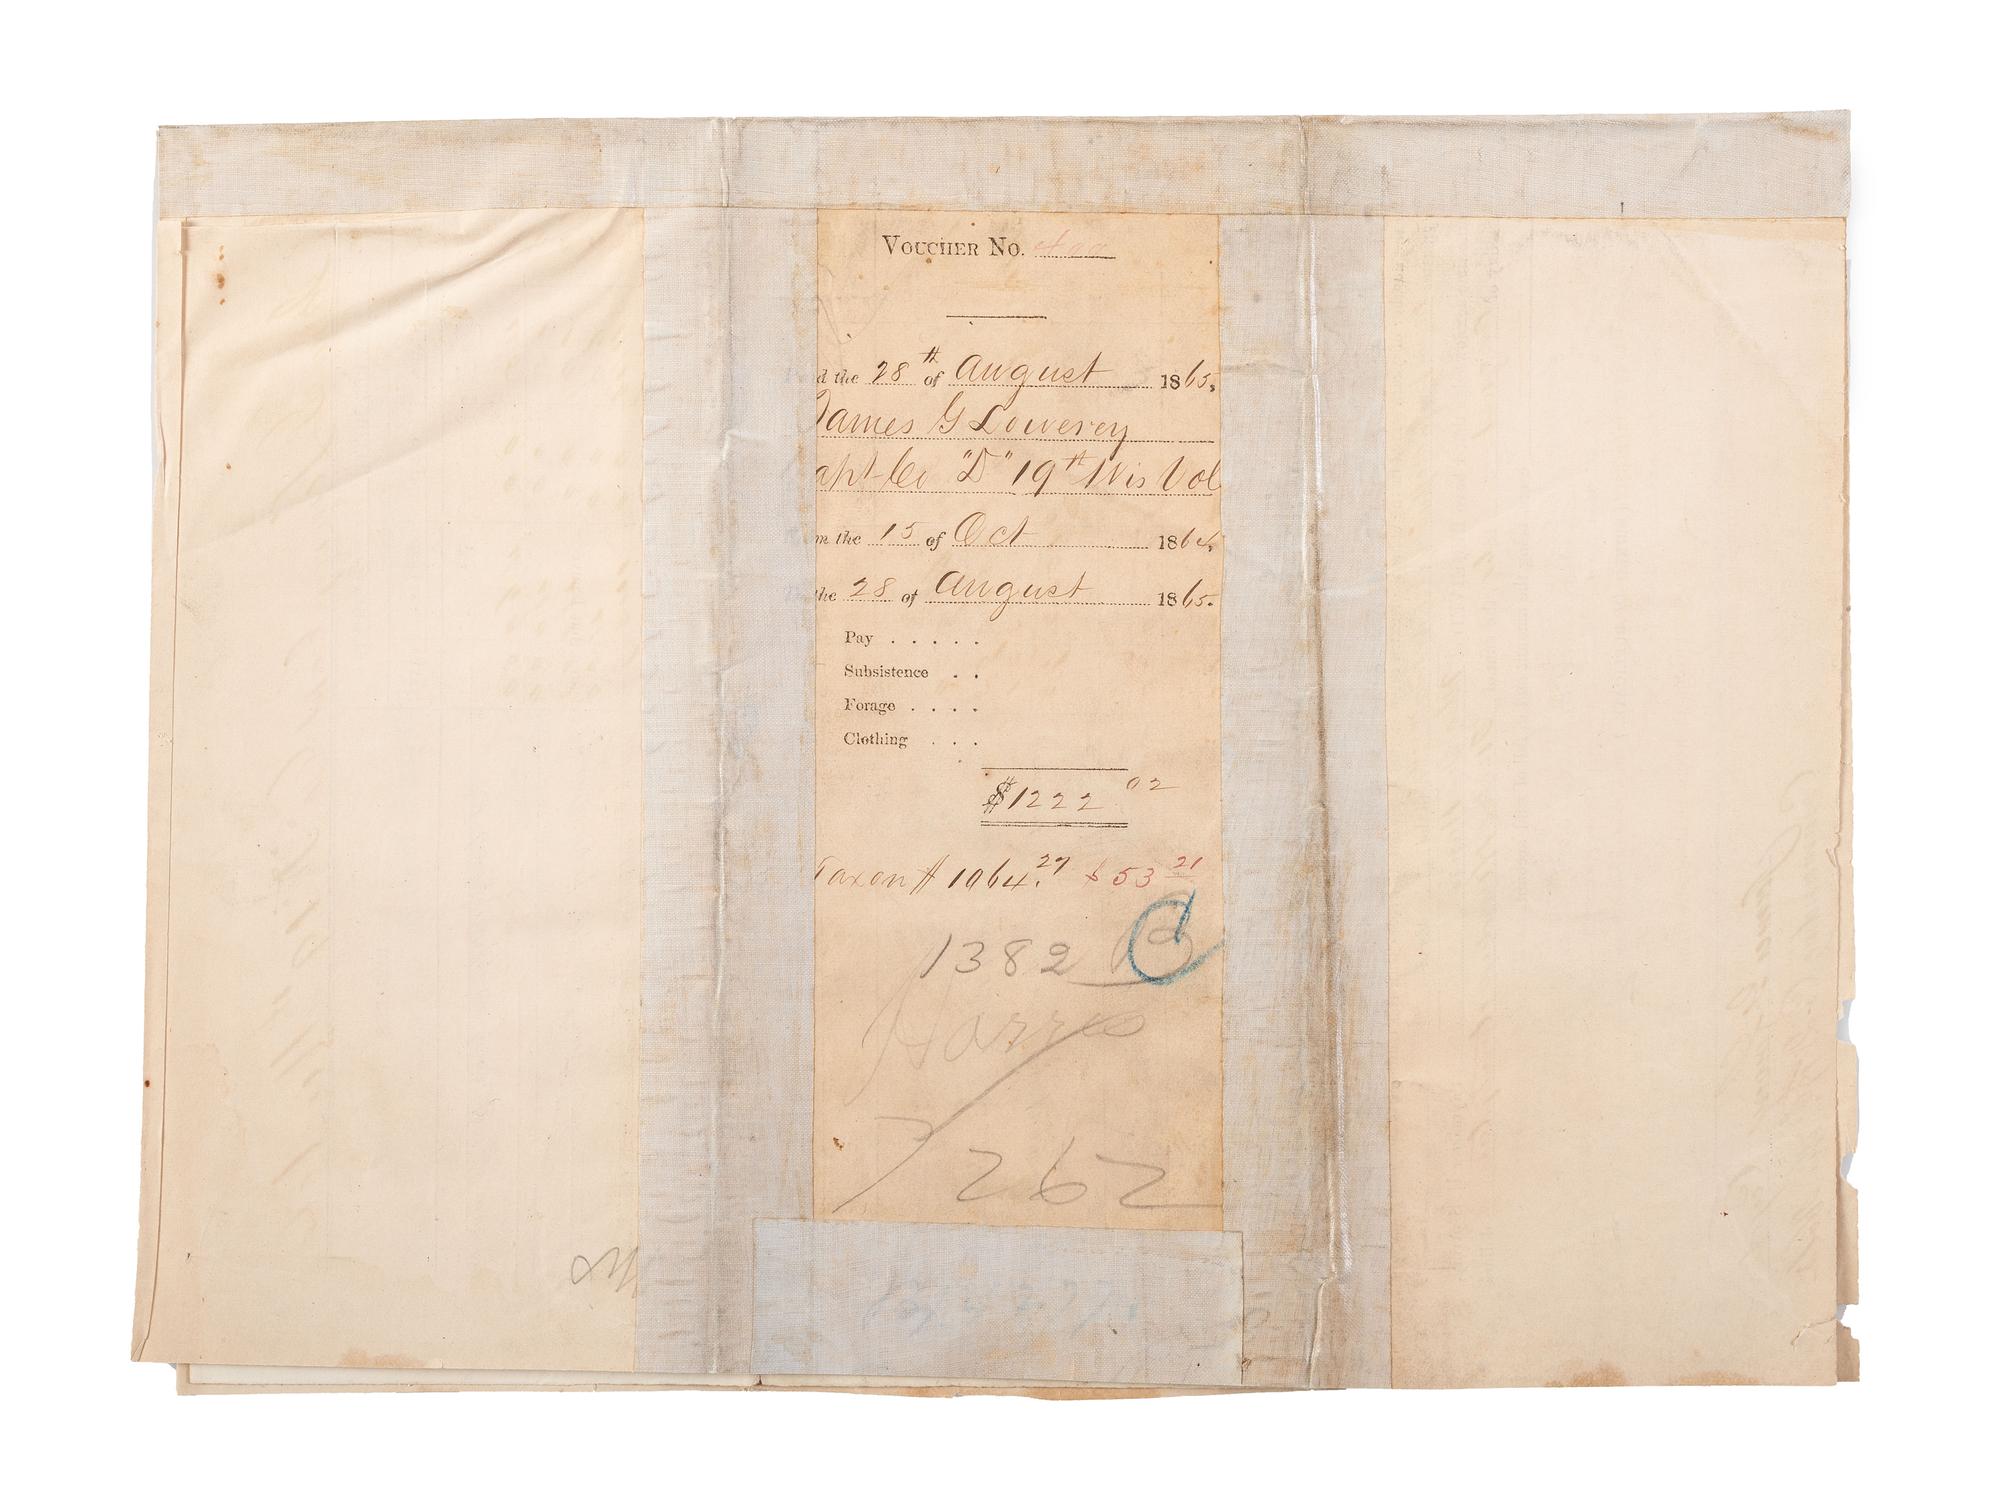 VOUCHER No.
d the 28th of August 1865,
James G Lowerey
apt Co "D" 19th Wis Vol
m the 15 of Oct 1864,
the 28 of August 1865.
Pay . . . . .
Subsistence . .
Forage . . . .
Clothing . . .
$1222 02
Tax on $ 1064.27 $ 53 21
1382
Harris
7262